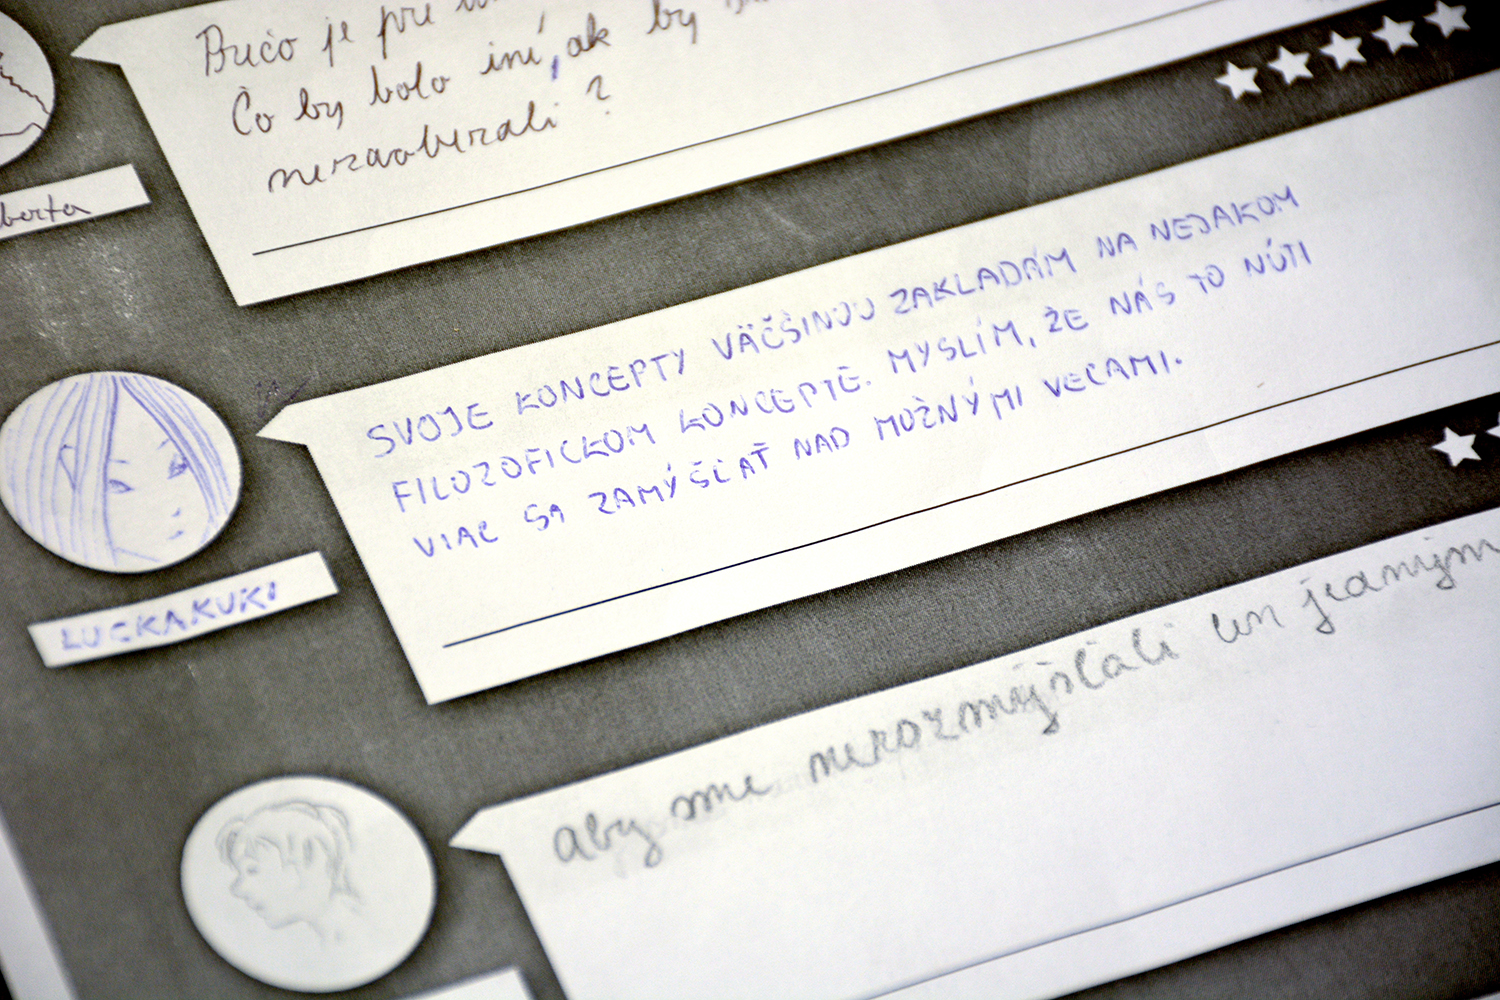 Prečo je pre
Čo by bolo iní, ak by
nezaoberali ?
berta
SVOJE KONCEPTY VÄČŠINOU ZAKLADÁM NA NEJAKOM
FILOZOFICKOM KONCEPTE. MYSLÍM, ŽE NÁS TO NÚTI
VIAC SA ZAMÝŠĽAŤ NAD MOŽNÝMI VECAMI.
LUCKAKUKI
aby sme nerozmýšľali len jedným